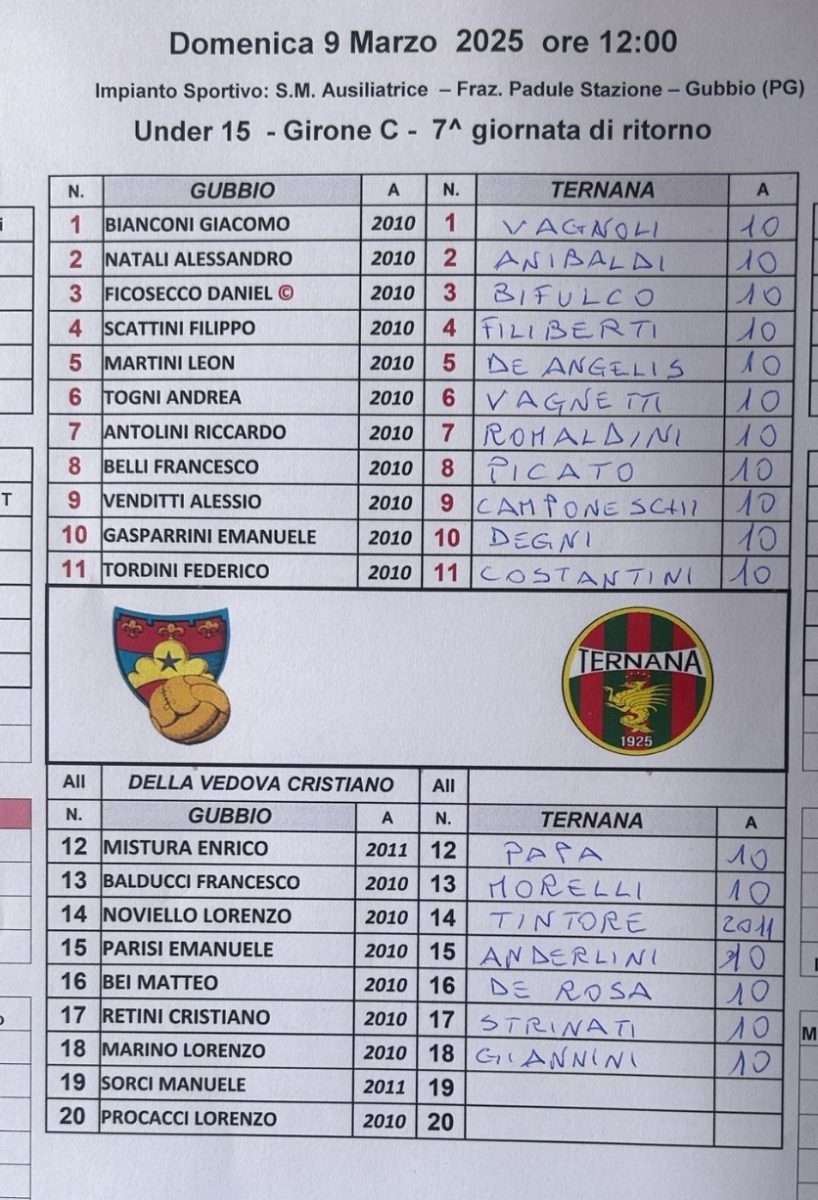 Domenica 9 Marzo 2025 ore 12:00
Impianto Sportivo: S.M. Ausiliatrice – Fraz. Padule Stazione – Gubbio (PG)
Under 15 - Girone C - 7^ giornata di ritorno
N. GUBBIO A N. TERNANA A
1 BIANCONI GIACOMO 2010 1 VAGNOLI 10
2 NATALI ALESSANDRO 2010 2 ANIBALDI 10
3 FICOSECCO DANIEL © 2010 3 BIFULCO 10
4 SCATTINI FILIPPO 2010 4 FILIBERTI 10
5 MARTINI LEON 2010 5 DE ANGELIS 10
6 TOGNI ANDREA 2010 6 VAGNETTI 10
7 ANTOLINI RICCARDO 2010 7 ROMALDINI 10
8 BELLI FRANCESCO 2010 8 PICATO 10
9 VENDITTI ALESSIO 2010 9 CAMPONESCHI 10
10 GASPARRINI EMANUELE 2010 10 DEGNI 10
11 TORDINI FEDERICO 2010 11 COSTANTINI 10
TERNANA
1925
All DELLA VEDOVA CRISTIANO All
N. GUBBIO A N. TERNANA A
12 MISTURA ENRICO 2011 12 PAPA 10
13 BALDUCCI FRANCESCO 2010 13 MORELLI 10
14 NOVIELLO LORENZO 2010 14 TINTORE 2011
15 PARISI EMANUELE 2010 15 ANDERLINI 10
16 BEI MATTEO 2010 16 DE ROSA 10
17 RETINI CRISTIANO 2010 17 STRINATI 10
18 MARINO LORENZO 2010 18 GIANNINI 10
19 SORCI MANUELE 2011 19
20 PROCACCI LORENZO 2010 20